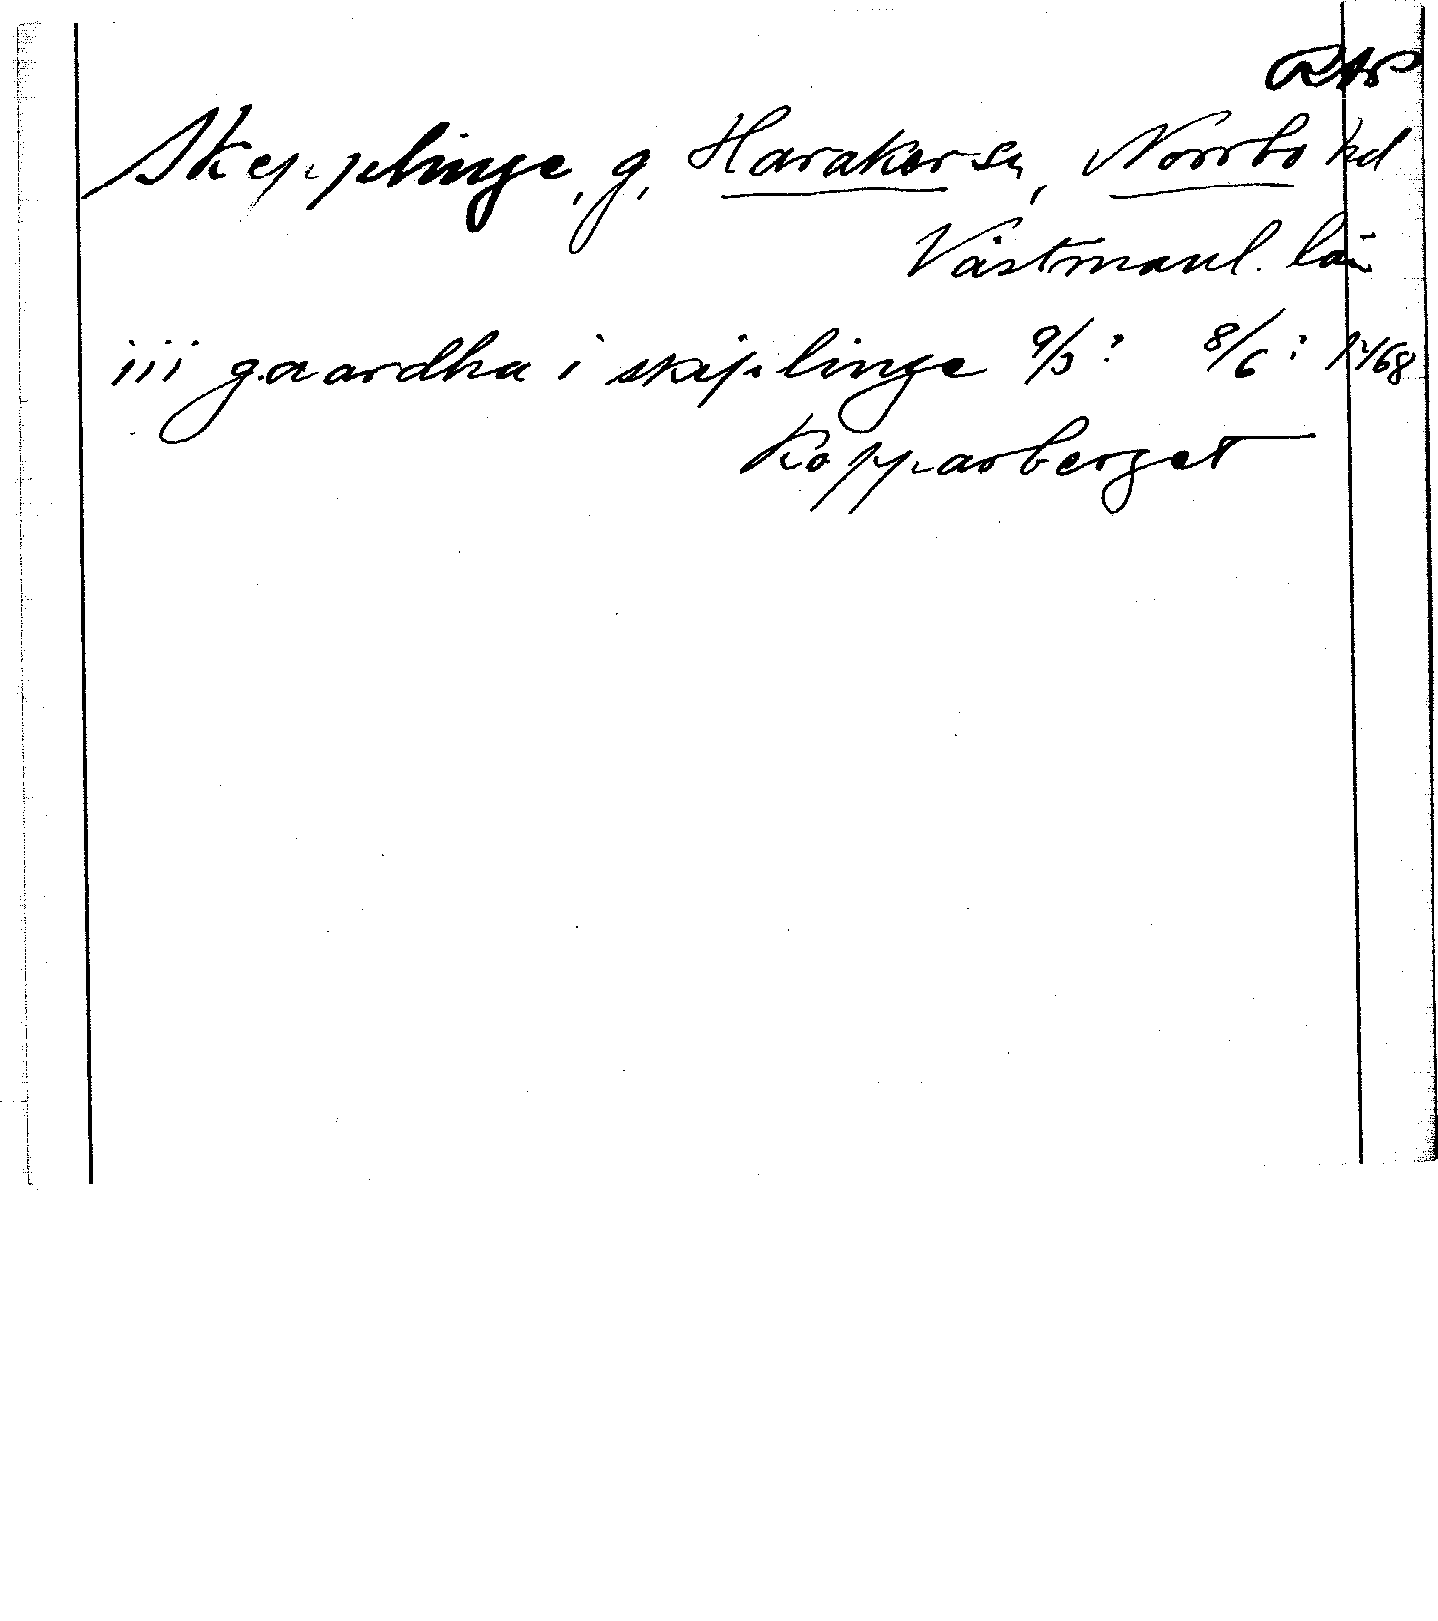 RAP
Skepplinge, g, Harakers sn, Norrbo hd
Västmanl. län
iii gaardha i skiplinge 9/3? 8/6? 1468
Kopparberget